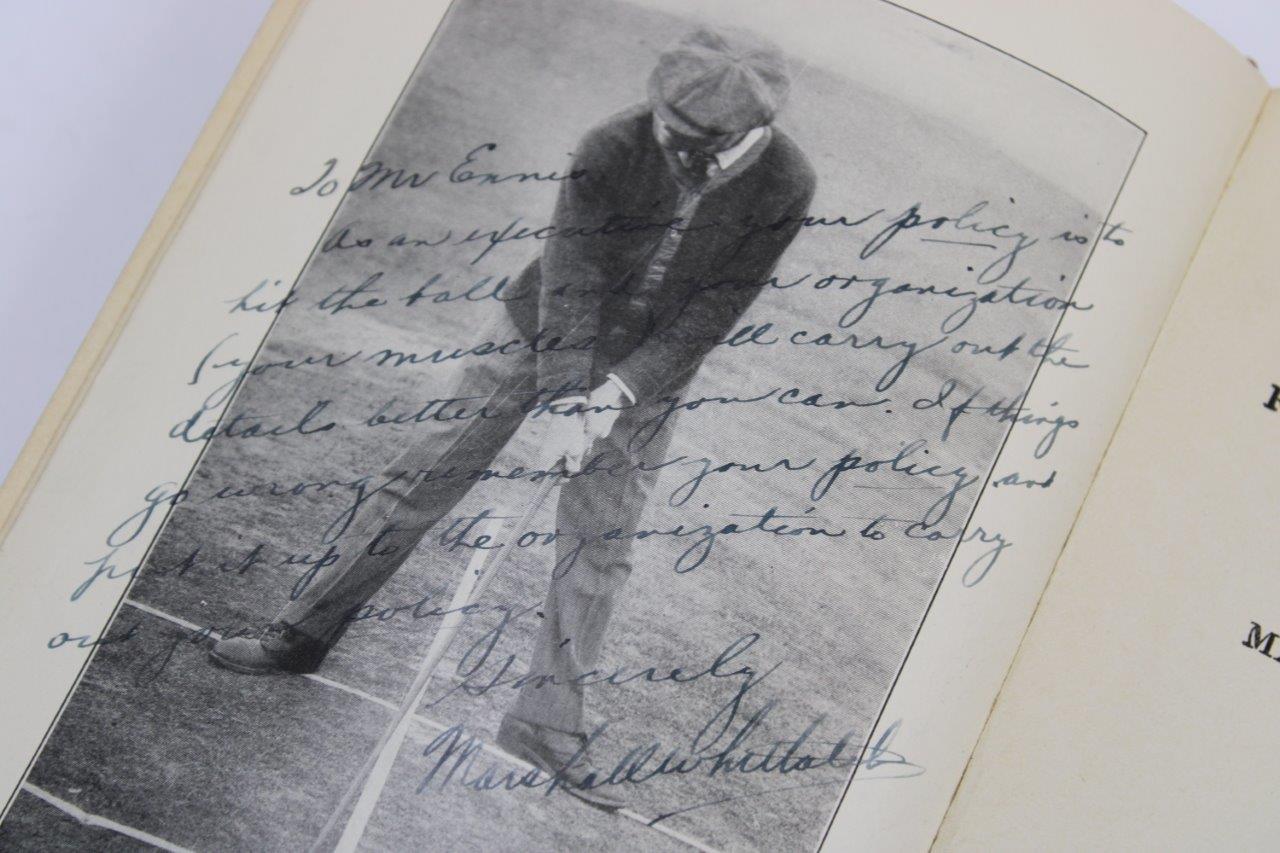 To Mr Ennis.
As an executive your policy is to
hit the ball and your organization
(your muscles) will carry out the
details better than you can. If things
go wrong remember your policy and
put it up to the organization to carry
out your policy.
Sincerely
Marshall Whitlatch
M